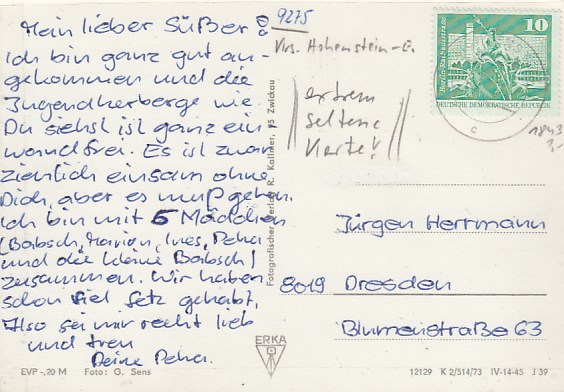 Mein lieber Süßer!
Ich bin ganz gut an-
gekommen und die
Jugendherberge wie
Du siehst ist ganz ein-
wandfrei. Es ist zwar
ziemlich einsam ohne
Dich, aber es muß gehen.
Ich bin mit 5 Mädchen
(Babsch, Marion, Ines, Petra
und die kleine Babsch)
zusammen. Wir haben
schon viel Fetz gehabt.
Also sei mir recht lieb
und treu
Deine Petra.
EVP -,20 M Foto: G. Sens
9275
Krs. Hohenstein-E.
extrem
seltene
Karte!
Fotografischer Verlag R. Kallmer, 95 Zwickau
ERKA
10
Berlin-Rathausstraße
DEUTSCHE DEMOKRATISCHE REPUBLIK
1843
3,-
Jürgen Herrmann
8019 Dresden
Blumenstraße 63
12129 K 2/514/73 IV-14-45 J 39